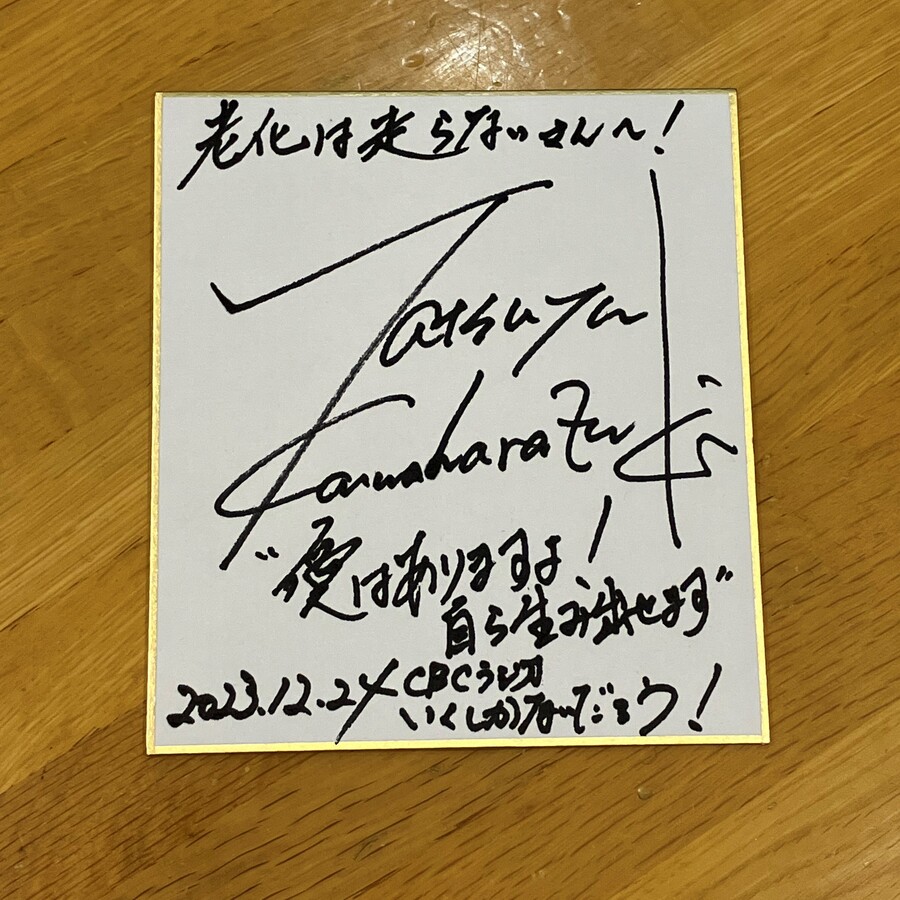 老化は走らないさんへ!
Tatsuya
Kawahara
"愛はありますよ!
自ら生み出せます"
2023.12.24 CBCラジオ
いくしかないだろう!